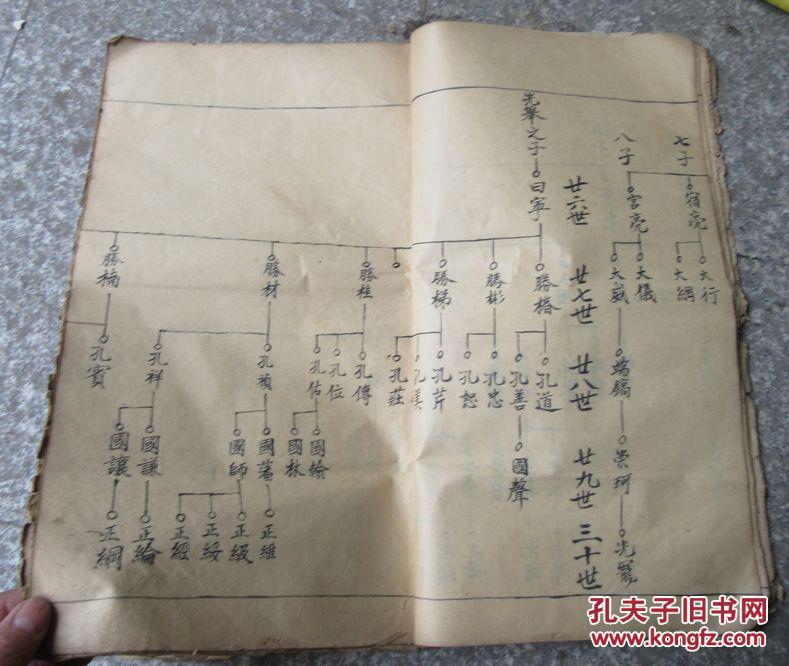 七子
宿亮
大行
大綱
八子
宮亮
大儀
大威
端鎬
崇珂
光寵
廿六世
廿七世
廿八世
廿九世
三十世
光舉之子
曰寧
勝椿
孔道
孔善
國聲
勝彬
孔忠
孔恕
勝梯
孔芹
孔莊
勝柱
孔傳
孔位
孔佑
國翰
國林
勝材
孔禎
國藩
國師
正維
正級
正綏
正經
孔祥
國謙
國讓
正綸
正綱
勝楠
孔賓
孔夫子旧书网
www.kongfz.com